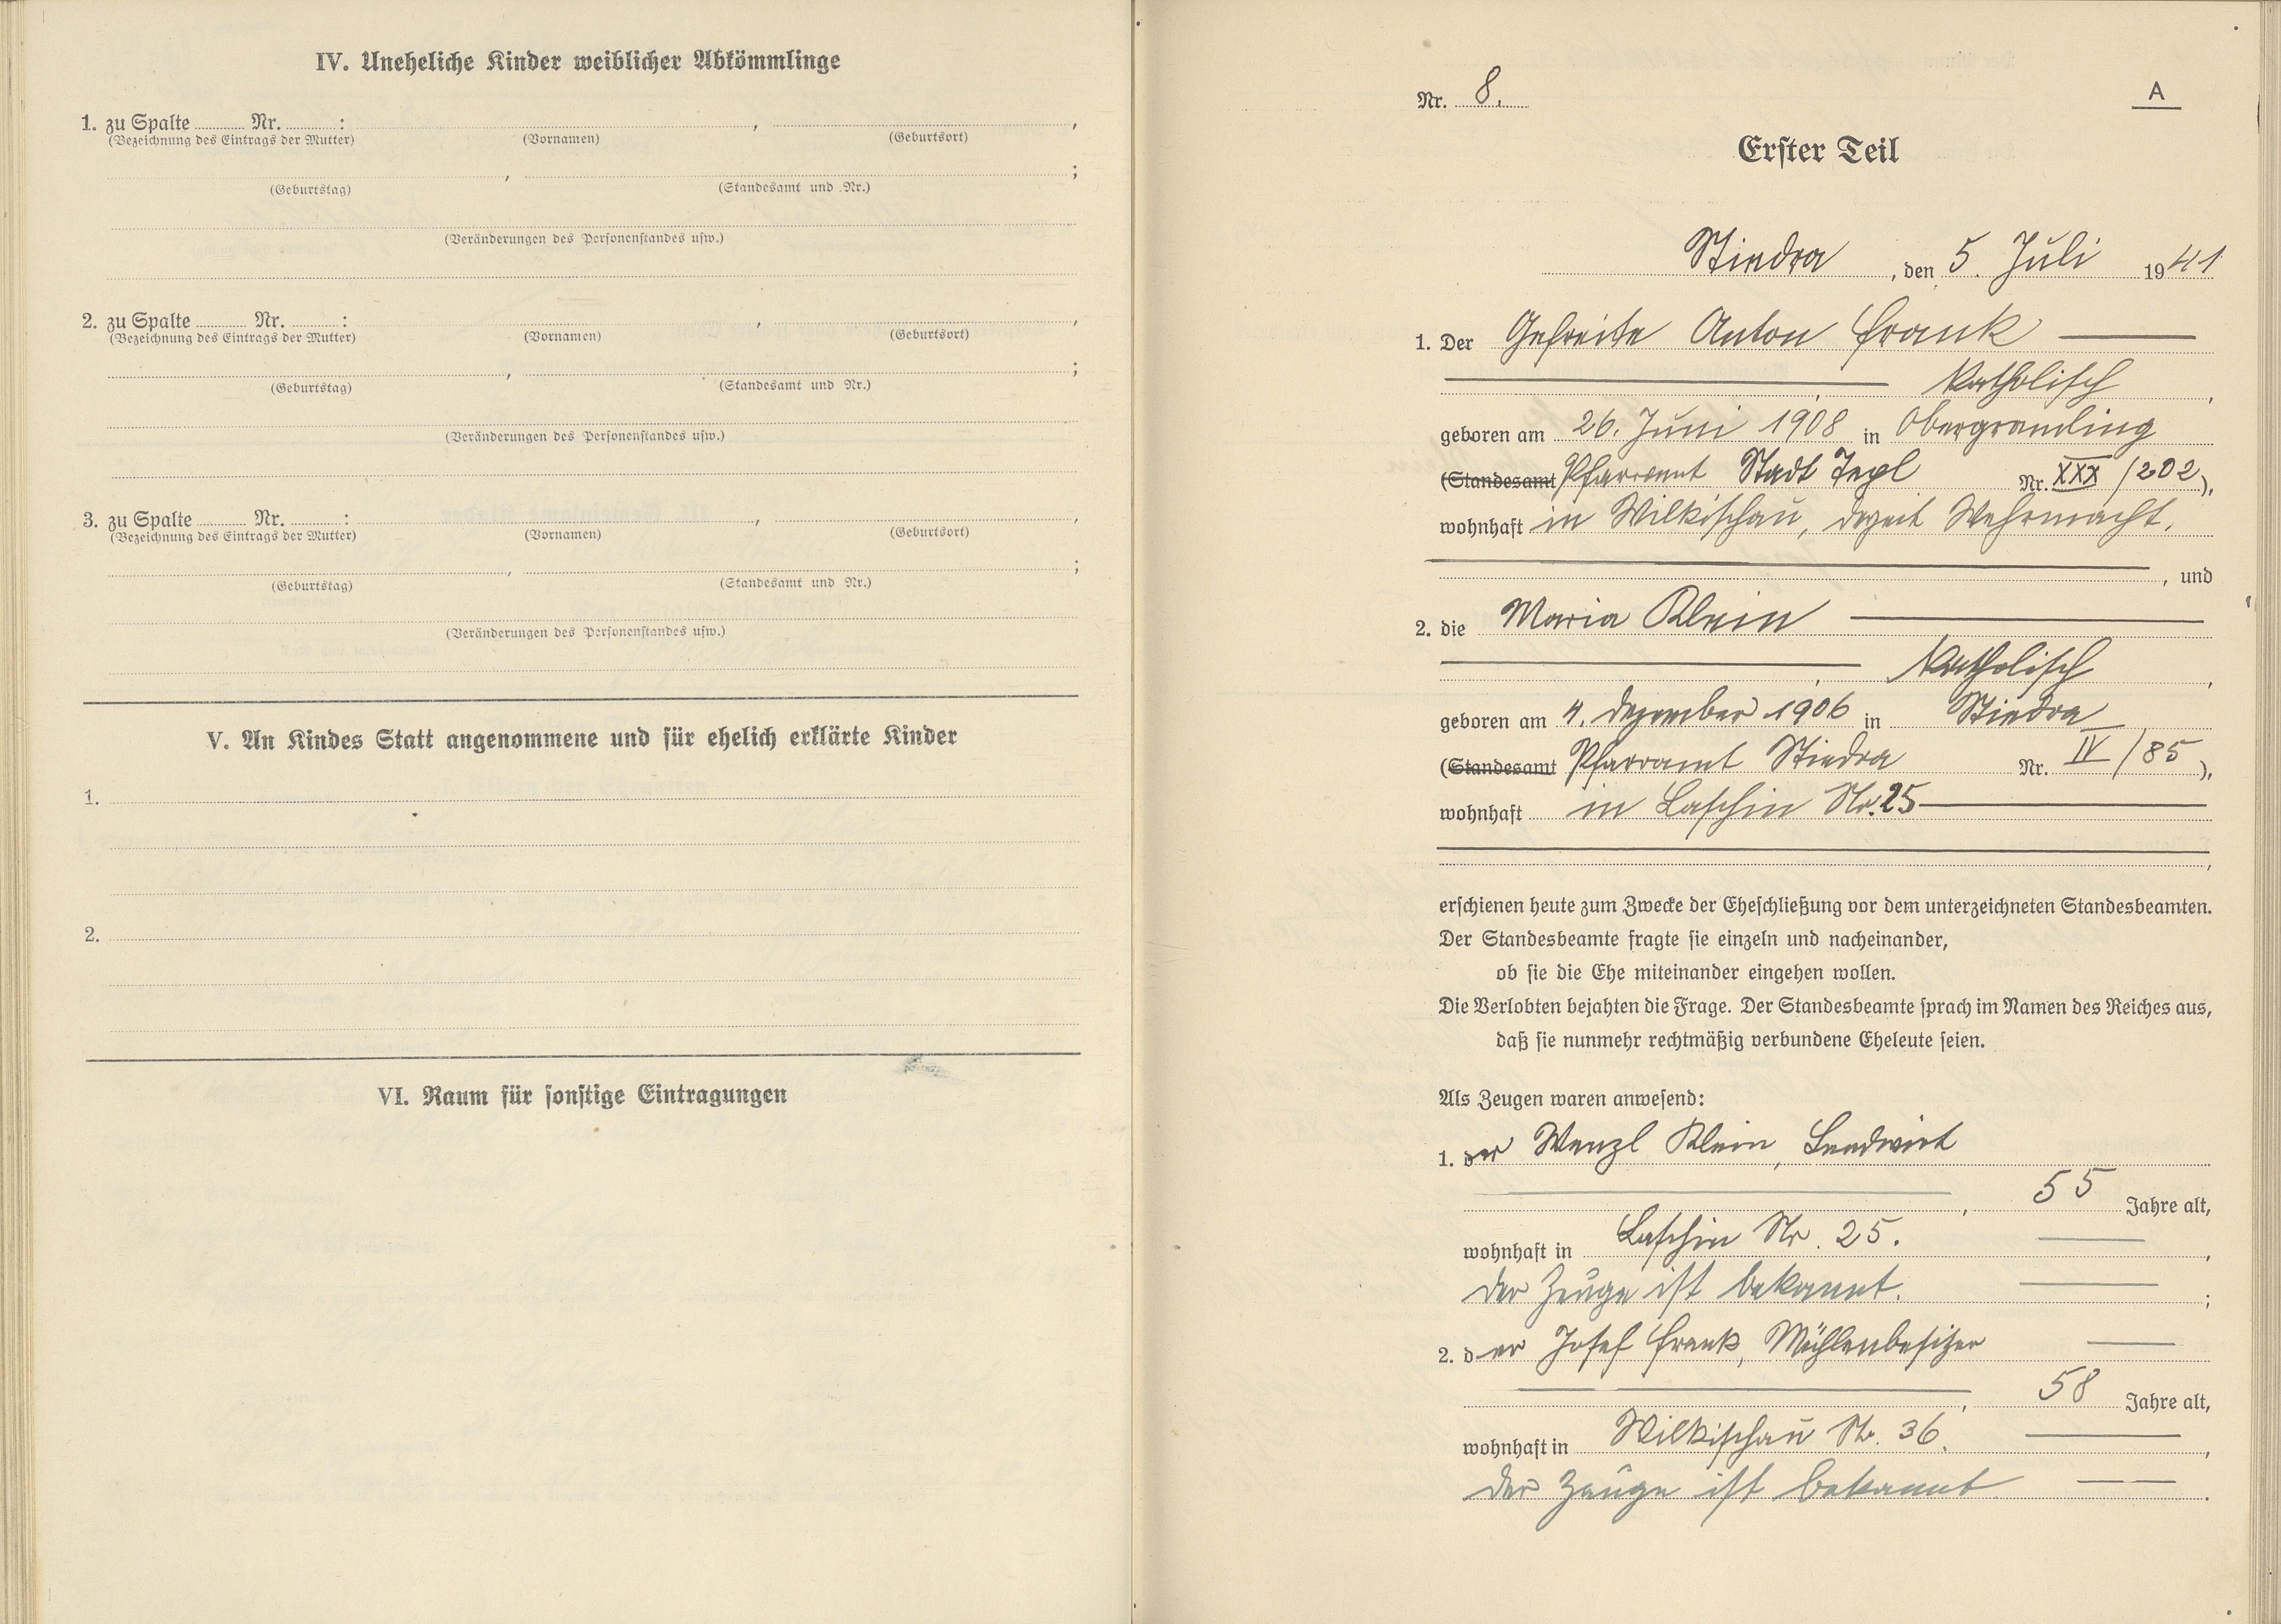 IV. Uneheliche Kinder weiblicher Abkömmlinge
1. zu Spalte ........ Nr. ........ : , ,
(Bezeichnung des Eintrags der Mutter) (Vornamen) (Geburtsort)
, ;
(Geburtstag) (Standesamt und Nr.)
(Veränderungen des Personenstandes usw.)
2. zu Spalte ........ Nr. ........ : , ,
(Bezeichnung des Eintrags der Mutter) (Vornamen) (Geburtsort)
, ;
(Geburtstag) (Standesamt und Nr.)
(Veränderungen des Personenstandes usw.)
3. zu Spalte ........ Nr. ........ : , ,
(Bezeichnung des Eintrags der Mutter) (Vornamen) (Geburtsort)
, ;
(Geburtstag) (Standesamt und Nr.)
(Veränderungen des Personenstandes usw.)
V. An Kindes Statt angenommene und für ehelich erklärte Kinder
1.
2.
VI. Raum für sonstige Eintragungen
Nr. 8. A
Erster Teil
Stiedra, den 5. Juli 1941
1. Der Gefreite Anton Frank
, katholisch,
geboren am 26. Juni 1908 in Obergramling
(Standesamt Pfarramt Stadt Tepl Nr. XXX/202),
wohnhaft in Wilkischau, derzeit Wehrmacht.
, und
2. die Maria Klein
, katholisch,
geboren am 4. Dezember 1906 in Stiedra
(Standesamt Pfarramt Stiedra Nr. IV/85),
wohnhaft in Laschin Nr. 25
,
erschienen heute zum Zwecke der Eheschließung vor dem unterzeichneten Standesbeamten.
Der Standesbeamte fragte sie einzeln und nacheinander,
ob sie die Ehe miteinander eingehen wollen.
Die Verlobten bejahten die Frage. Der Standesbeamte sprach im Namen des Reiches aus,
daß sie nunmehr rechtmäßig verbundene Eheleute seien.
Als Zeugen waren anwesend:
1. der Wenzl Klein, Landwirt
, 55 Jahre alt,
wohnhaft in Laschin Nr. 25. ,
Der Zeuge ist bekannt. ;
2. der Josef Frank, Mühlenbesitzer
, 58 Jahre alt,
wohnhaft in Wilkischau Nr. 36. ,
Der Zeuge ist bekannt .